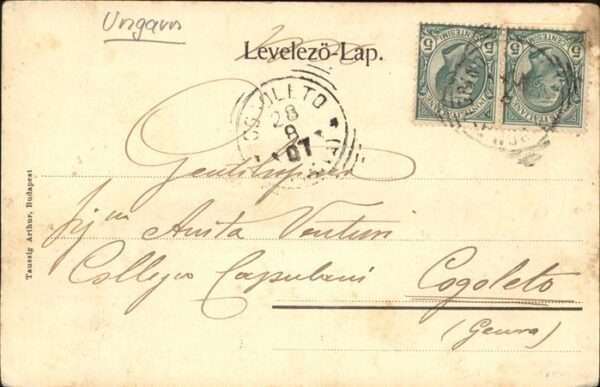 Ungarn
Levelező-Lap.
COGOLETO
28
9
07
Gentilissima
Sig.na Anita Venturi
Collegio Capulani Cogoleto
(Genova)
Taussig Arthur, Budapest
5 5